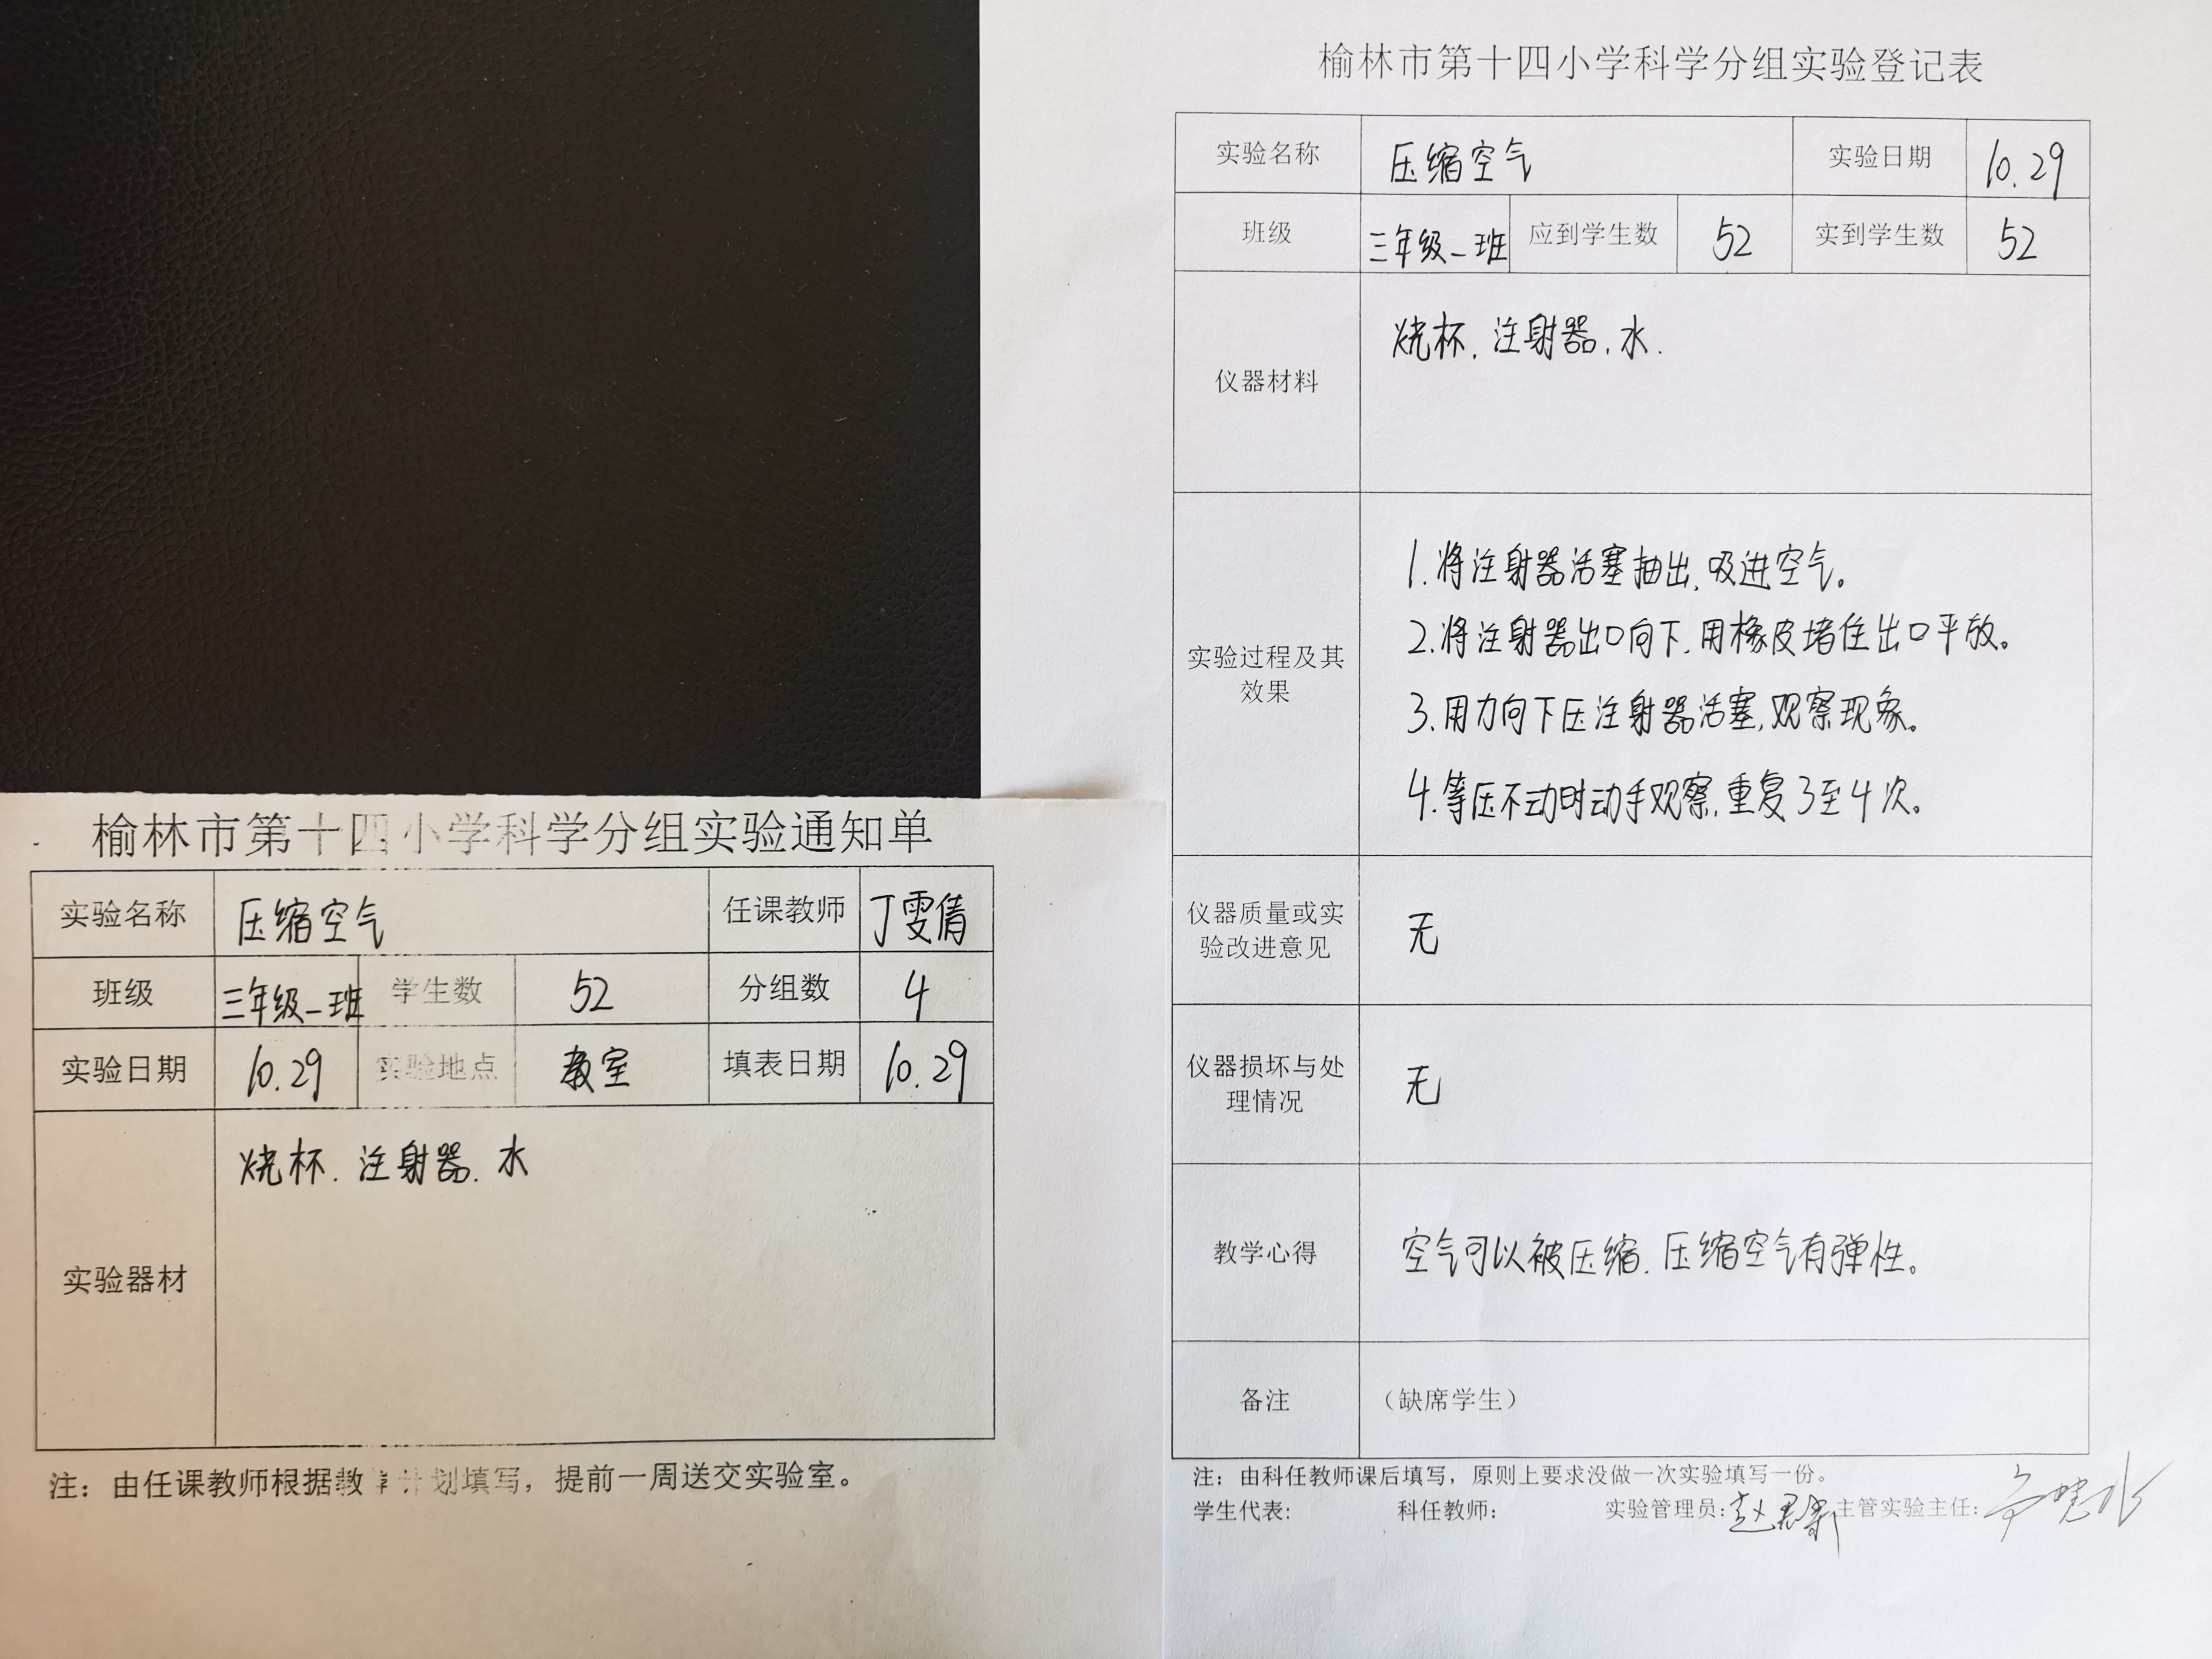 榆林市第十四小学科学分组实验通知单
实验名称 压缩空气 任课教师 丁雯倩
班级 三年级一班 学生数 52 分组数 4
实验日期 10.29 实验地点 教室 填表日期 10.29
实验器材 烧杯. 注射器. 水
注：由任课教师根据教学计划填写，提前一周送交实验室。
榆林市第十四小学科学分组实验登记表
实验名称 压缩空气 实验日期 10.29
班级 三年级一班 应到学生数 52 实到学生数 52
仪器材料 烧杯. 注射器. 水.
实验过程及其
效果
1.将注射器活塞抽出,吸进空气。
2.将注射器出口向下.用橡皮堵住出口平放。
3.用力向下压注射器活塞,观察现象。
4.等压不动时动手观察,重复3至4次。
仪器质量或实
验改进意见
无
仪器损坏与处
理情况
无
教学心得 空气可以被压缩.压缩空气有弹性。
备注 （缺席学生）
注：由科任教师课后填写，原则上要求没做一次实验填写一份。
学生代表: 科任教师: 实验管理员: 主管实验主任: